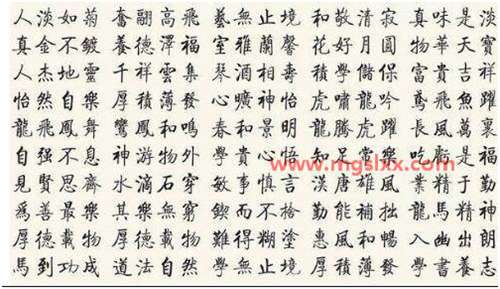 人淡如菊 奮翮高飛 藝無止境 和敬清寂 真味是淡
真金不鍍 養德澤福 室雅蘭馨 花好月圓 物華天寶
人杰地靈 千祥雲集 琴酒相壽 學儲保 富貴吉祥
怡然自樂 厚積薄發 心曠神怡 虎嘯龍吟 鳶飛魚躍
龍飛鳳舞 鸞鳳和鳴 春和景明 龍騰虎躍 長風萬裏
自强不息 神游物外 學貴心悟 知足常樂 吃虧是福
見賢思齊 水滴石穿 敏事慎言 漢唐雄風 業精于勤
爲善最樂 其樂無窮 而不捨 勤能補拙 龍馬精神
厚德載物 厚德載物 難得糊塗 惠風和暢 入幽出朗
馬到功成 道法自然 學無止境 厚積薄發 學書養志
www.mgslxx.com